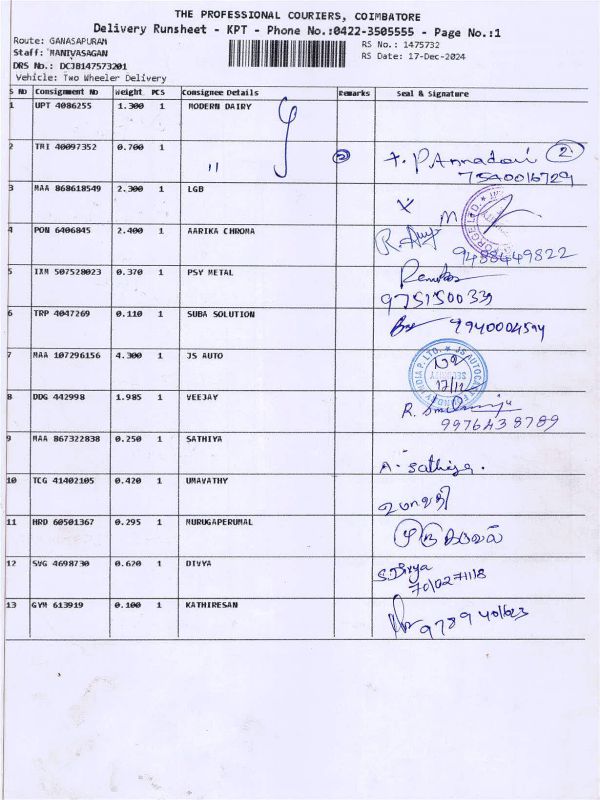 THE PROFESSIONAL COURIERS, COIMBATORE
Delivery Runsheet - KPT - Phone No.:0422-3505555 - Page No.:1
Route: GANASAPURAM
Staff: MANIVASAGAN
DRS No.: DCJB147573201
Vehicle: Two Wheeler Delivery
RS No.: 1475732
RS Date: 17-Dec-2024
S No Consignment No Weight PCS Consignee Details Remarks Seal & Signature
1 UPT 4086255 1.300 1 MODERN DAIRY
2 TRI 40097352 0.700 1 " 2 P. Annadorai 2
7540016729
3 MAA 868618549 2.300 1 LGB
4 PON 6406845 2.400 1 AARIKA CHROMA
9488449822
5 IXM 507528023 0.370 1 PSY METAL
9751500339
6 TRP 4047269 0.110 1 SUBA SOLUTION 9940004594
7 MAA 107296156 4.300 1 JS AUTO
17/12
8 DDG 442998 1.985 1 VEEJAY R.
9976438789
9 MAA 867322838 0.250 1 SATHIYA A. Sathiya.
10 TCG 41402105 0.420 1 UMAVATHY
11 HRD 60501367 0.295 1 MURUGAPERUMAL
12 SVG 4698730 0.620 1 DIVYA S. Divya
7010271118
13 GYM 613919 0.100 1 KATHIRESAN 9789401623